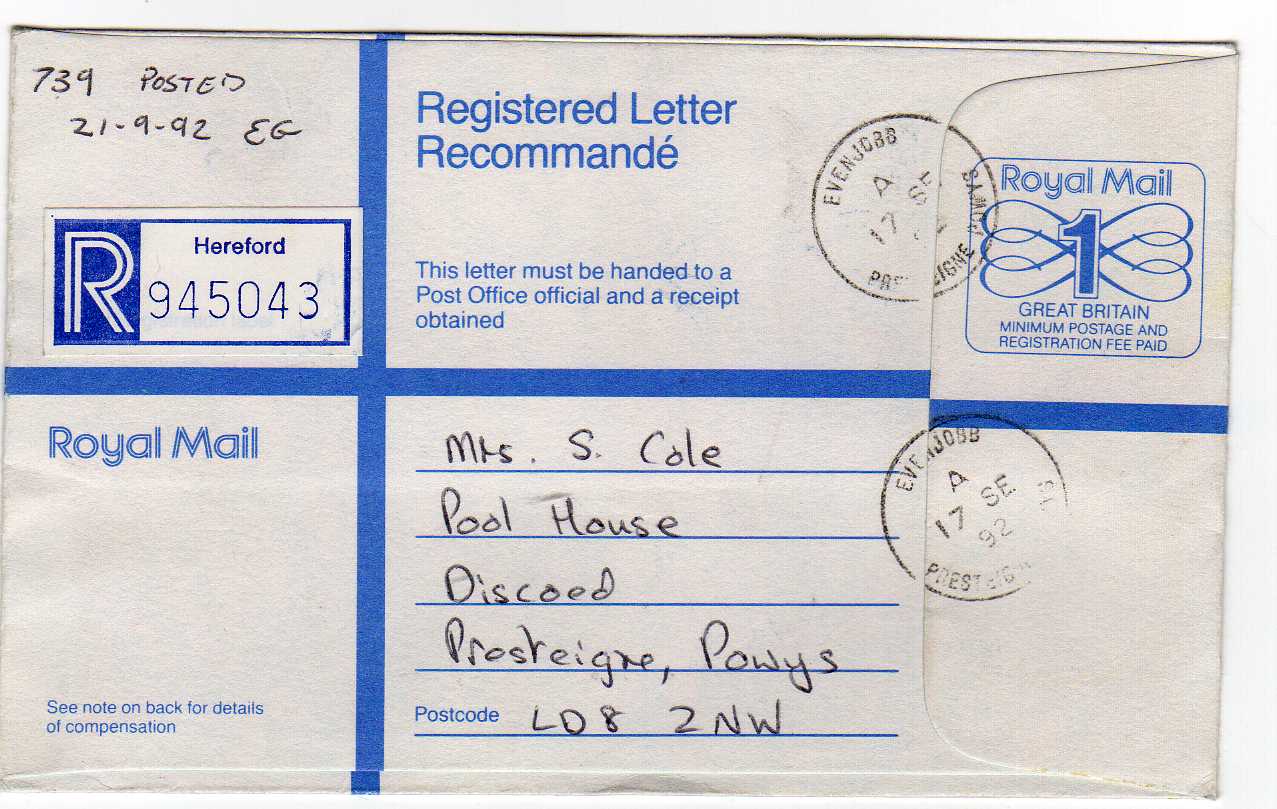 739 POSTED
21-9-92 EG
Registered Letter
Recommandé
R
Hereford
945043
This letter must be handed to a
Post Office official and a receipt
obtained
EVENJOBB
A
17 SE
PRESTEIGNE
Royal Mail
1
GREAT BRITAIN
MINIMUM POSTAGE AND
REGISTRATION FEE PAID
Royal Mail
Mrs. S. Cole
Pool House
Discoed
Presteigne, Powys
Postcode LD8 2NW
EVENJOBB
A
17 SE
92
PRESTEIGN
See note on back for details
of compensation